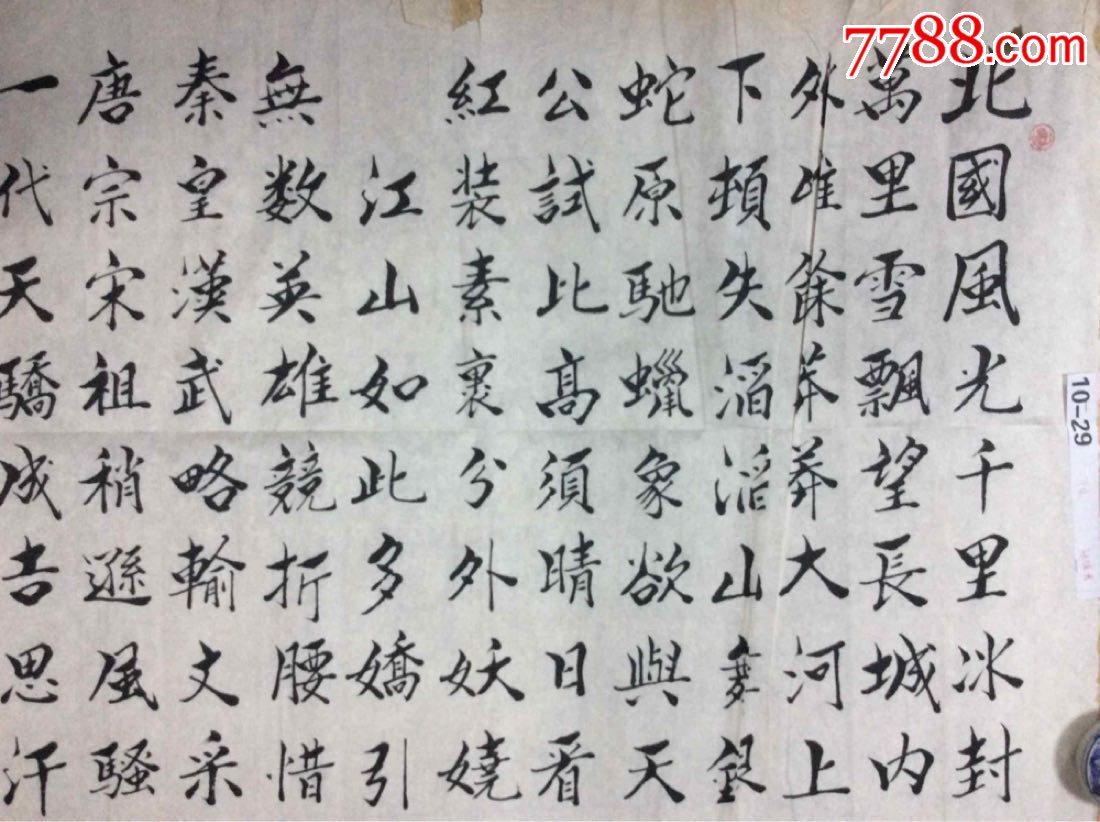 7788.com
北國風光千里冰封
萬里雪飄望長城內
外唯餘莽莽大河上
下頓失滔滔山舞銀
蛇原馳蠟象欲與天
公試比高須晴日看
紅装素裹分外妖嬈
江山如此多嬌引
無数英雄競折腰惜
秦皇漢武略輸文采
唐宗宋祖稍遜風騷
一代天驕成吉思汗
10-29